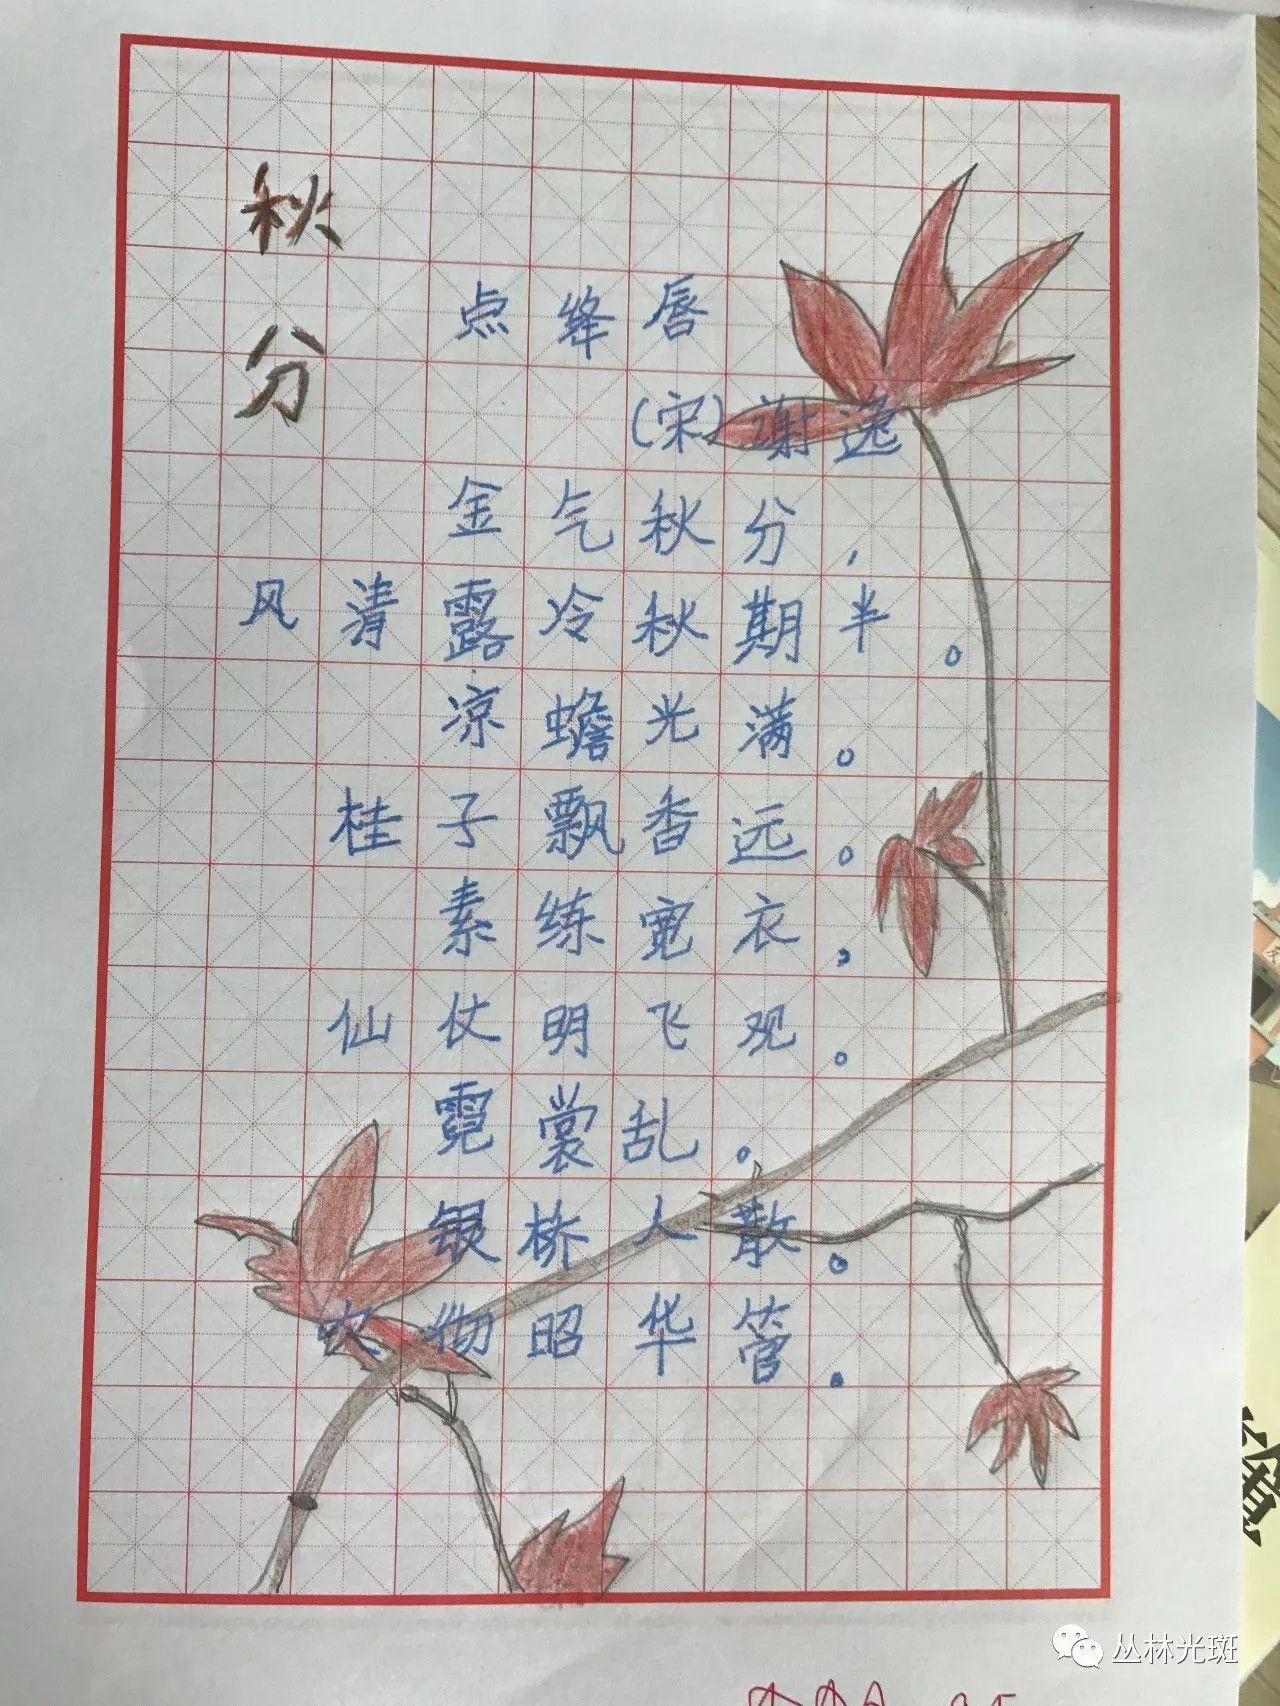 秋分
点绛唇
(宋)谢逸
金气秋分，
风清露冷秋期半。
凉蟾光满。
桂子飘香远。
素练宽衣。
仙仗明飞观。
霓裳乱。
银桥人散。
吹彻昭华管。
丛林光斑